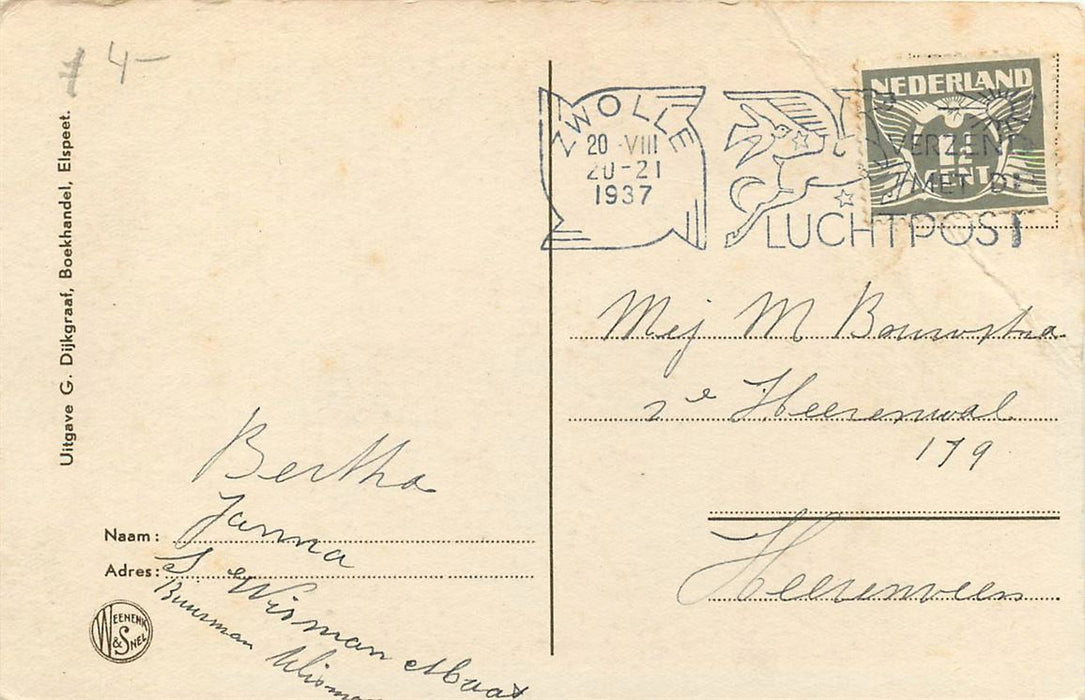 4-
Uitgave G. Dijkgraaf, Boekhandel, Elspeet.
ZWOLLE
20 VIII
20-21
1937
VERZENDT
MET DE
LUCHTPOST
NEDERLAND
1½
CENT
Mej M Bouwstra
2e Heerenwal
179
Heerenveen
Bertha
Janna
Naam:
Adres:
S Wisman
Buurman
WEENENK
& SNEL